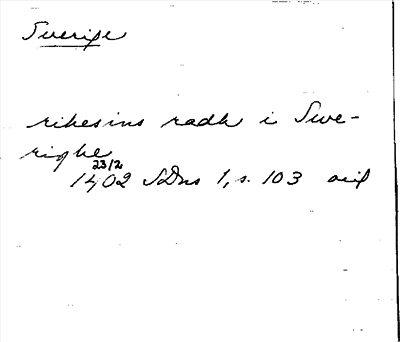 Sverige
rikesins radh i Swe-
righe
23/2
1402 SDns 1, s. 103 orig